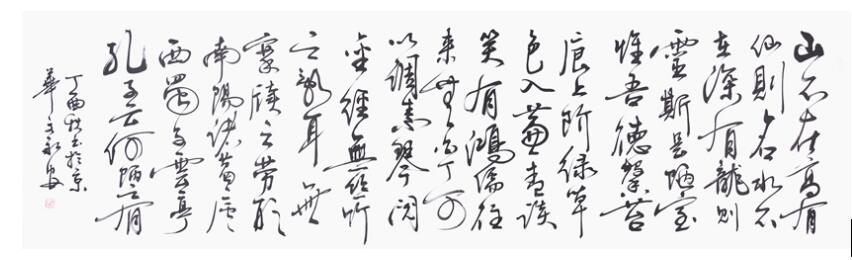 山不在高有
仙則名水不
在深有龍則
靈斯是陋室
惟吾德馨苔
痕上階綠草
色入簾青談
笑有鴻儒往
來無白丁可
以調素琴閱
金經無絲竹
之亂耳無
案牘之勞形
南陽諸葛廬
西蜀子雲亭
孔子云何陋之有
丁酉秋书於京
華